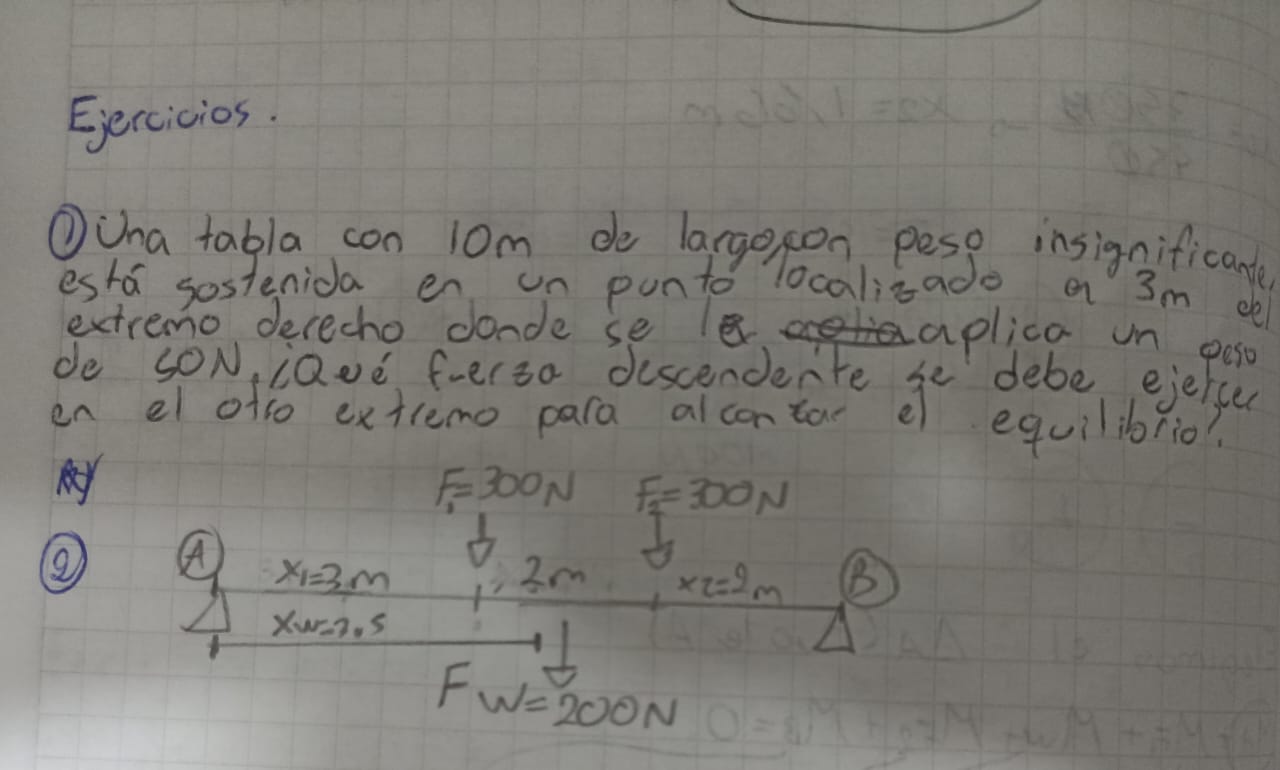 Ejercicios.
① Una tabla con 10m de largo, con peso insignificante,
está sostenida en un punto localizado a 3m del
extremo derecho donde se le aplica un peso
de 50N, ¿Qué fuerza descendente se debe ejercer
en el otro extremo para alcanzar el equilibrio?.
F₁=300N F₂=300N
② A x₁=3m 2m x₂=2m B
xw=3.5
Fw=200N